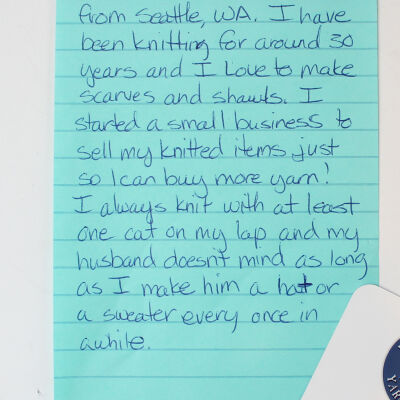 from Seattle, WA. I have
been knitting for around 30
years and I Love to make
scarves and shawls. I
started a small business to
sell my knitted items just
so I can buy more yarn!
I always knit with at least
one cat on my lap and my
husband doesn't mind as long
as I make him a hat or
a sweater every once in
awhile.